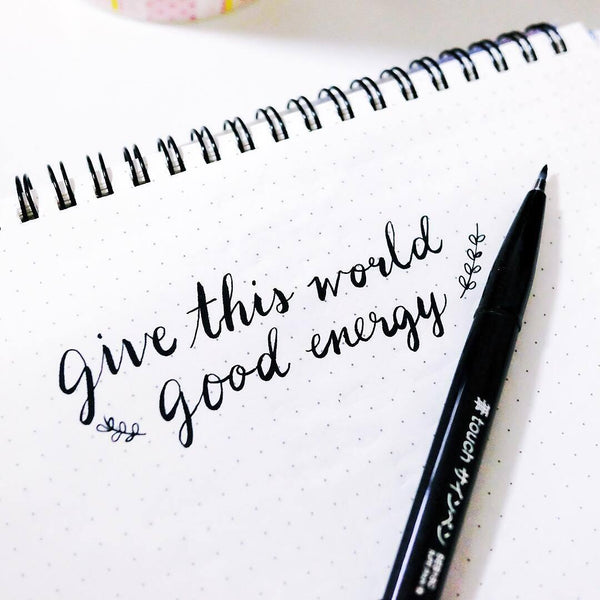 give this world
good energy
#touch サインペン